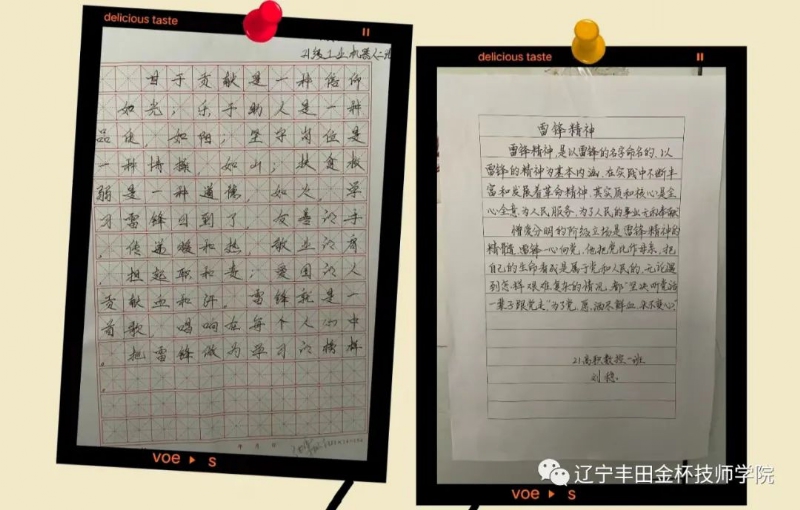 delicious taste
21级工业机器人
甘于贡献是一种信仰
，如光；乐于助人是一种
品质，如阳；坚守岗位是
一种情操，如山；扶贫救
弱是一种道德，如火，学
习雷锋日到了，友善的手
，传递暖和热，敬业的肩
，担起职和责；爱国的人
贡献血和汗。雷锋就是一
首歌，唱响在每个人心中
，把雷锋做为学习的榜样
voe s
delicious taste
雷锋精神
雷锋精神，是以雷锋的名字命名的、以
雷锋的精神为基本内涵、在实践中不断丰
富和发展着革命精神，其实质和核心是全
心全意为人民服务，为了人民的事业无私奉献
憎爱分明的阶级立场是雷锋精神的
精髓，雷锋一心向党，他把党比作母亲，把
自己的生命看成是属于党和人民的，无论遇
到怎样艰难复杂的情况，都"坚决听党话
一辈子跟党走"为了党，愿"洒尽鲜血，永不变心"
21高职数控一班
刘稳
辽宁丰田金杯技师学院
voe s